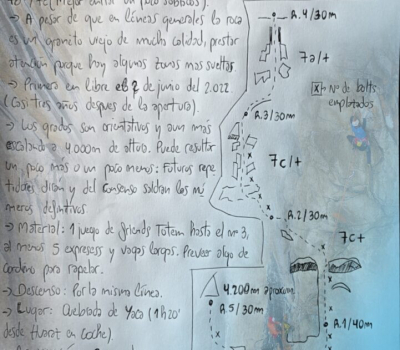 → A pesar de que en líneas generales la roca
es un granito viejo de mucha calidad, prestar
atención porque hay algunas zonas mas sueltas.
→ Primera en libre el 2 de junio del 2.022
(Casi tres años despues de la apertura).
→ Los grados son orientativos y aun mas
escalando a 4000m de altura. Puede resultar
un poco mas o un poco menos: Futuros repe
tidores dirán y del consenso saldran los nú
meros definitivos
→ Material: 1 juego de friends Totem hasta el nº 3,
al menos 5 expresess y vagas largas. Preveer algo de
cordino para rapelar.
→ Descenso: Por la misma línea.
→ Lugar: Quebrada de (1h20'
desde Huaraz en coche).
R.4/30m
7a/+
x → Nº de bolts
emplotados
R.3/30m
7c/+
R.2/30m
7c+
4.200m aproxim.
R.5/30m
R.1/40m